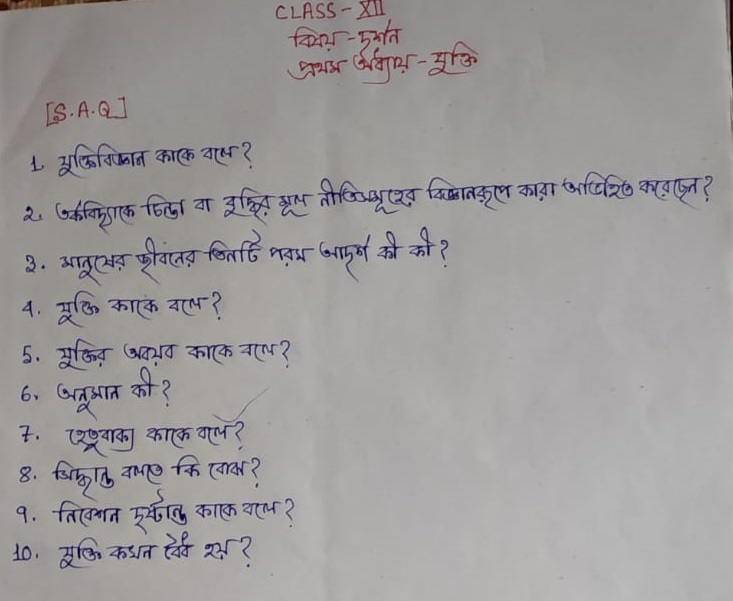 CLASS - XII
বিষয় - দর্শন
প্রথম অধ্যায় - যুক্তি
[S.A.Q]
1. যুক্তিবিজ্ঞান কাকে বলে?
2. তর্কবিদ্যাকে চিন্তা বা যুক্তির মূল নীতিসমূহের বিজ্ঞানরূপে কারা অভিহিত করেছেন?
3. মানুষের জীবনের তিনটি পরম আদর্শ কী কী?
4. যুক্তি কাকে বলে?
5. যুক্তির অবয়ব কাকে বলে?
6. অনুমান কী?
7. হেতুবাক্য কাকে বলে?
8. সিদ্ধান্ত বলতে কি বোঝ?
9. নিবেশন দৃষ্টান্ত কাকে বলে?
10. যুক্তি কখন বৈধ হয়?